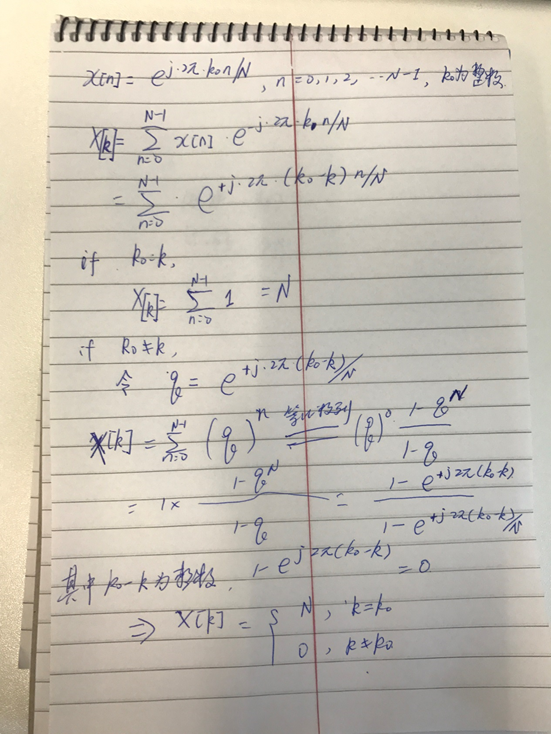 x[n] = e^{j·2π·k₀n/N}, n=0,1,2, ⋯ N-1, k₀为整数
X[k] = ∑_{n=0}^{N-1} x[n] · e^{-j·2π·k·n/N}
= ∑_{n=0}^{N-1} · e^{+j·2π·(k₀-k)n/N}
if k₀=k,
X[k] = ∑_{n=0}^{N-1} 1 = N
if k₀≠k,
令 q = e^{+j·2π(k₀-k)/N}
X[k] = ∑_{n=0}^{N-1} (q)^n 等比级列 = (q)^0 · (1-q^N)/(1-q)
= 1× (1-q^N)/(1-q) = (1-e^{+j2π(k₀-k)})/(1-e^{+j2π(k₀-k)/N})
其中 k₀-k为整数, 1-e^{j2π(k₀-k)} = 0
⇒ X[k] = { N, k=k₀
0, k≠k₀